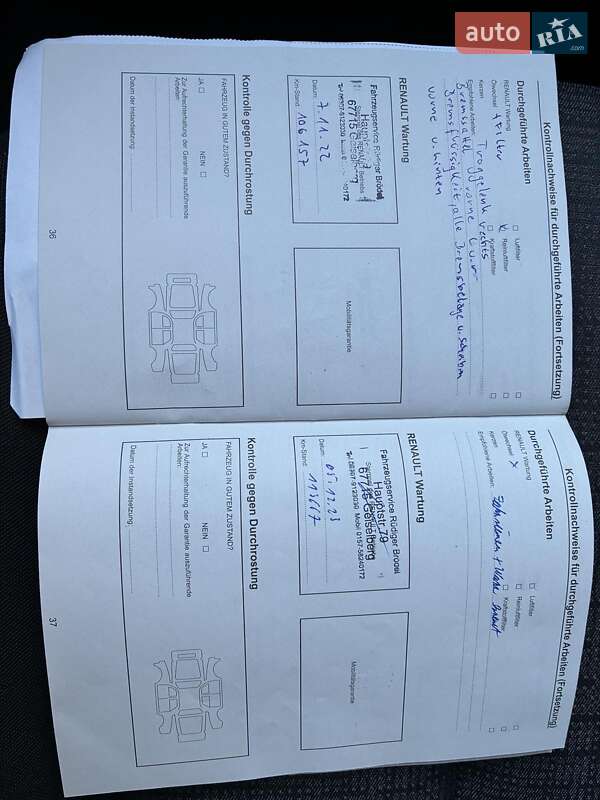 auto RIA .com
Kontrollnachweise für durchgeführte Arbeiten (Fortsetzung)
Durchgeführte Arbeiten
RENAULT Wartung
Ölwechsel + Filter
Kerzen
Luftfilter
Reinluftfilter
Kraftstofffilter
Empfohlene Arbeiten: Traggelenk rechts
Bremssattel vorne
Bremsflüssigkeit, alle Bremsbeläge u. Scheiben
vorne u. hinten
RENAULT Wartung
Fahrzeugservice Rüdiger Brödel
67715 Geiselberg
Datum: 7.11.22
Km-Stand: 106157
Mobilitätsgarantie
Kontrolle gegen Durchrostung
FAHRZEUG IN GUTEM ZUSTAND?
JA
NEIN
Zur Aufrechterhaltung der Garantie auszuführende
Arbeiten:
Datum der Instandsetzung:
36
Kontrollnachweise für durchgeführte Arbeiten (Fortsetzung)
Durchgeführte Arbeiten
RENAULT Wartung
Ölwechsel x
Kerzen
Luftfilter
Reinluftfilter
Kraftstofffilter
Empfohlene Arbeiten: Zahnriemen +
RENAULT Wartung
Fahrzeugservice Rüdiger Brödel
Hauptstr. 79
67715 Geiselberg
Tel 06307-9123030 Mobil 0157-58240172
Datum: 05.12.23
Km-Stand: 113667
Mobilitätsgarantie
Kontrolle gegen Durchrostung
FAHRZEUG IN GUTEM ZUSTAND?
JA
NEIN
Zur Aufrechterhaltung der Garantie auszuführende
Arbeiten:
Datum der Instandsetzung:
37